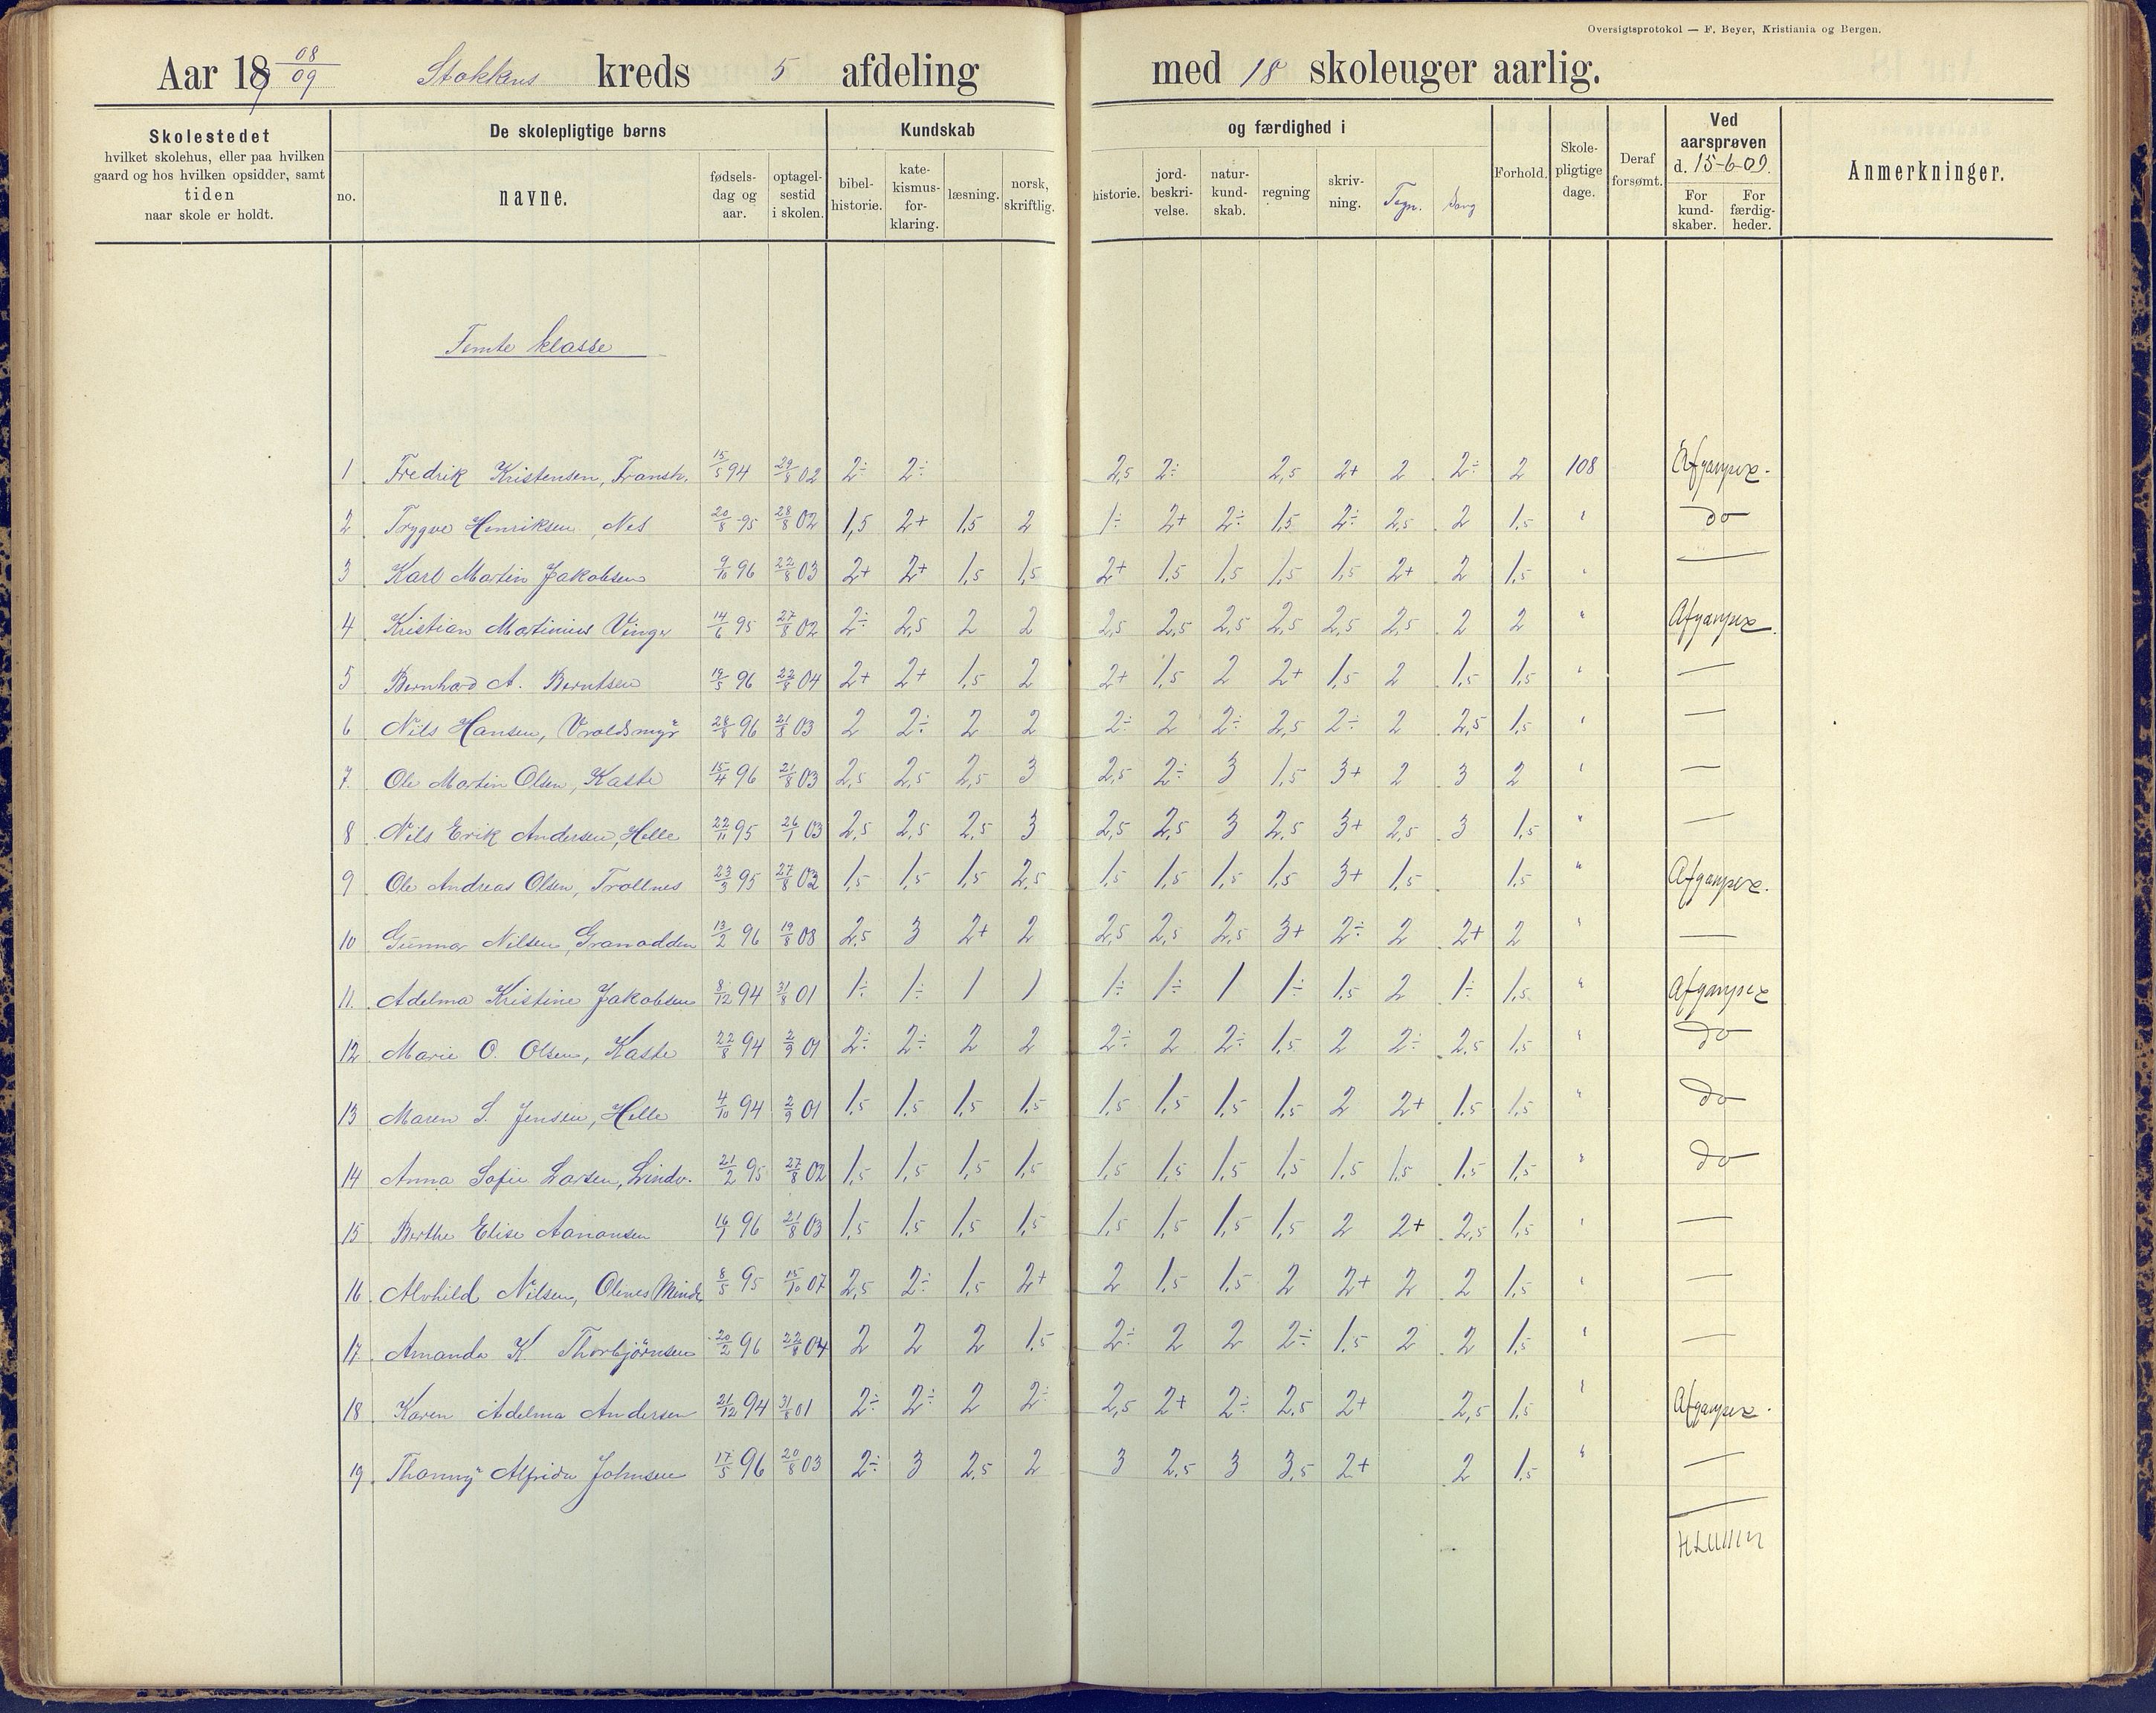 Oversigtsprotokol — F. Beyer, Kristiania og Bergen.
Aar 19 08/09 Stokken kreds 5 afdeling med 18 skoleuger aarlig.
Skolestedet hvilket skolehus, eller paa hvilken gaard og hos hvilken opsidder, samt tiden naar skole er holdt.
De skolepligtige børns
no. navne. fødselsdag og aar. optagelsestid i skolen.
Kundskab og færdighed i
bibelhistorie. katekismusforklaring. læsning. norsk, skriftlig. historie. jordbeskrivelse. naturkundskab. regning skrivning. Tegn. Sang
Forhold. Skolepligtige dage. Deraf forsømt.
Ved aarsprøven d. 15-6-09.
For kundskaber. For færdigheder.
Anmerkninger.
Femte klasse
1 Fredrik Kristensen, Fransh. 15/5 94 29/8 02 2÷ 2÷ 2,5 2÷ 2,5 2+ 2 2÷ 2 108
2 Trygve Henriksen, Nes 20/8 95 28/8 02 1,5 2+ 1,5 2 1÷ 2+ 2÷ 1,5 2÷ 2,5 2 1,5 " do
3 Karl Martin Jakobsen 9/10 96 22/8 03 2+ 2+ 1,5 1,5 2+ 1,5 1,5 1,5 1,5 2+ 2 1,5 " —
4 Kristian Martinius Vinge 14/6 95 27/8 02 2÷ 2,5 2 2 2,5 2,5 2,5 2,5 2,5 2,5 2 2 "
5 Bernhard A. Berntsen 19/5 96 22/8 04 2+ 2+ 1,5 2 2+ 1,5 2 2+ 1,5 2 1,5 1,5 " —
6 Nils Hansen, Vroldsmyr 28/8 96 21/8 03 2 2÷ 2 2 2÷ 2 2÷ 2,5 2÷ 2 2,5 1,5 " —
7. Ole Martin Olsen, Kaste 15/4 96 21/8 03 2,5 2,5 2,5 3 2,5 2÷ 3 1,5 3+ 2 3 2 " —
8. Nils Erik Andersen, Helle 22/11 95 26/1 03 2,5 2,5 2,5 3 2,5 2,5 3 2,5 3+ 2,5 3 1,5 " —
9 Ole Andreas Olsen, Trollnes 23/3 95 27/8 02 1,5 1,5 1,5 2,5 1,5 1,5 1,5 1,5 3+ 1,5 1,5 "
10 Gunnar Nilsen, Granodden 13/2 96 19/8 08 2,5 3 2+ 2 2,5 2,5 2,5 3+ 2÷ 2 2+ 2 " —
11. Adelma Kristine Jakobsen 8/12 94 31/8 01 1÷ 1÷ 1 1 1÷ 1÷ 1 1÷ 1,5 2 1÷ 1,5 "
12 Marie O. Olsen, Kaste 22/8 94 2/9 01 2÷ 2÷ 2 2 2÷ 2 2÷ 1,5 2 2÷ 2,5 1,5 " do
13 Maren S. Jensen, Helle 4/10 94 2/9 01 1,5 1,5 1,5 1,5 1,5 1,5 1,5 1,5 2 2+ 1,5 1,5 " do
14 Anna Sofie Larsen, Lindv. 21/2 95 27/8 02 1,5 1,5 1,5 1,5 1,5 1,5 1,5 1,5 1,5 1,5 1,5 1,5 " do
15 Berthe Elise Aanonsen 96 21/8 03 1,5 1,5 1,5 1,5 1,5 1,5 1,5 1,5 2 2+ 2,5 1,5 " —
16. Alvhild Nilsen, Olines Minde 8/5 95 15/10 07 2,5 2÷ 1,5 2+ 2 1,5 1,5 2 2+ 2 2 1,5 " —
17. Amanda K. Thorbjörnsen 20/2 96 22/8 04 2 2 2 1,5 2÷ 2 2 2÷ 1,5 2 2 1,5 " —
18 Karen Adelma Andersen 21/12 94 31/8 01 2÷ 2÷ 2 2÷ 2,5 2+ 2÷ 2,5 2+ 2,5 1,5 "
19. Thonny Alfride Johnsen 17/5 96 20/8 03 2÷ 3 2,5 2 3 2,5 3 3,5 2+ 2 1,5 " —